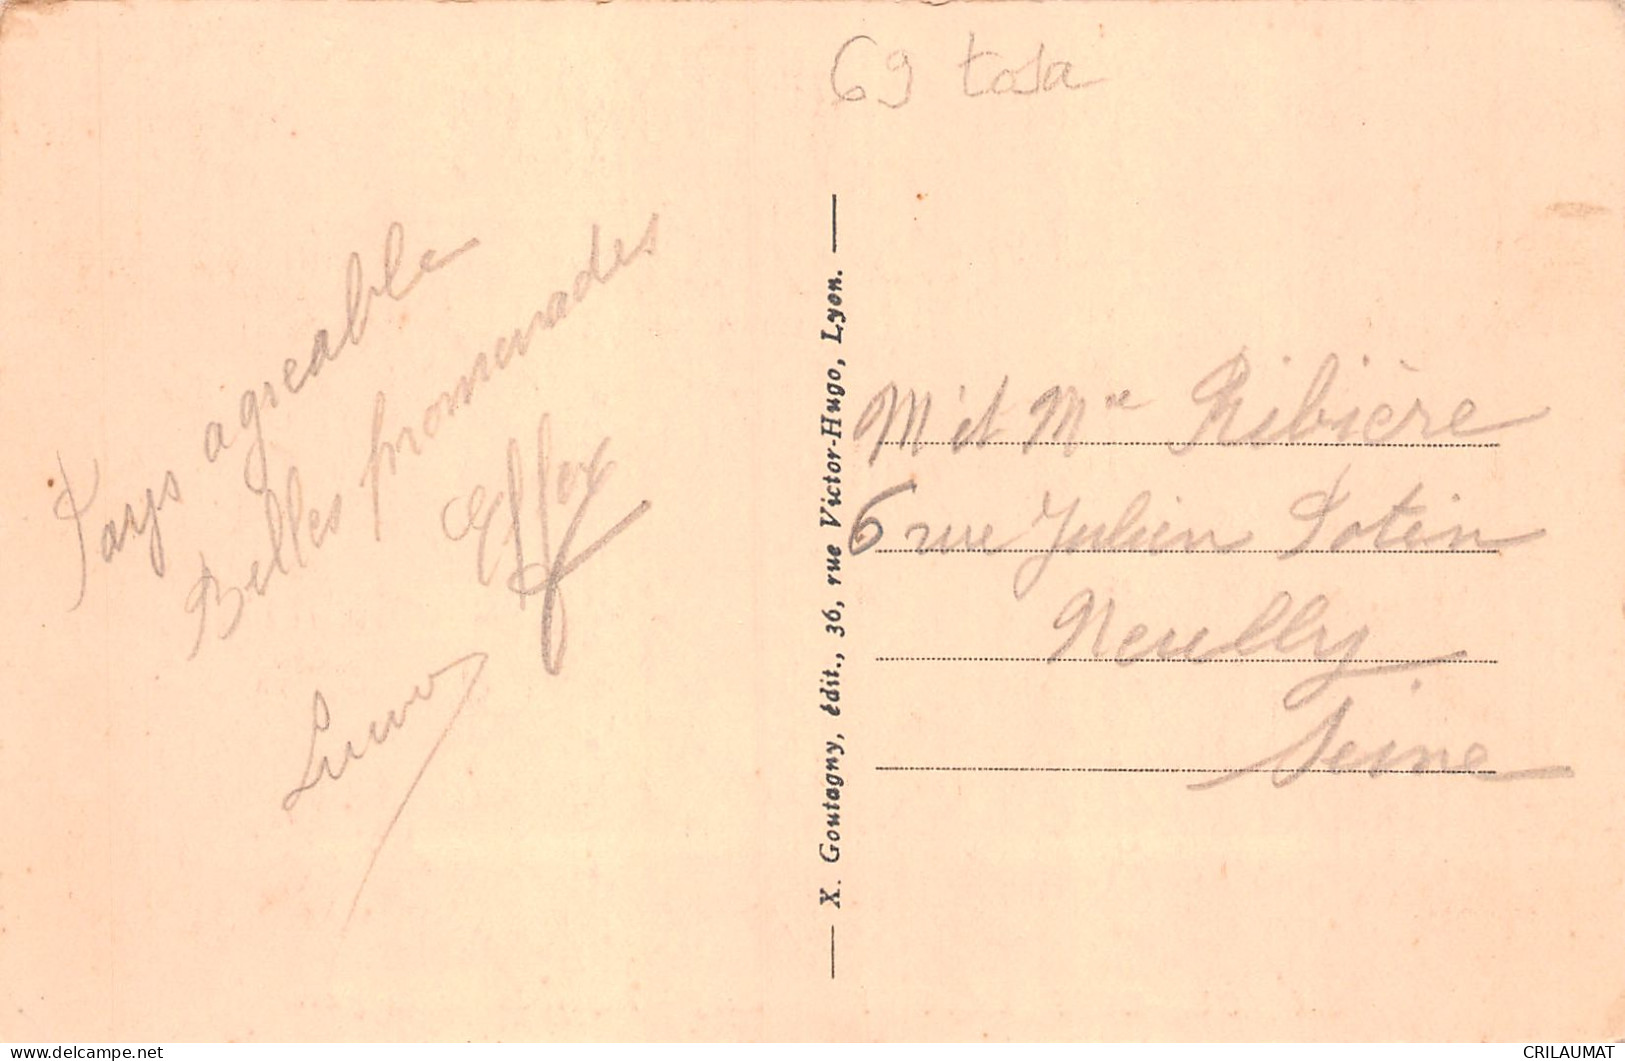 69 tosa
Pays agréable
Belles promenades
X. Goutagny, édit., 36, rue Victor-Hugo, Lyon.
Mr et Mme Ribière
6 rue Julien Potin
Neuilly
Seine
www.delcampe.net
CRILAUMAT